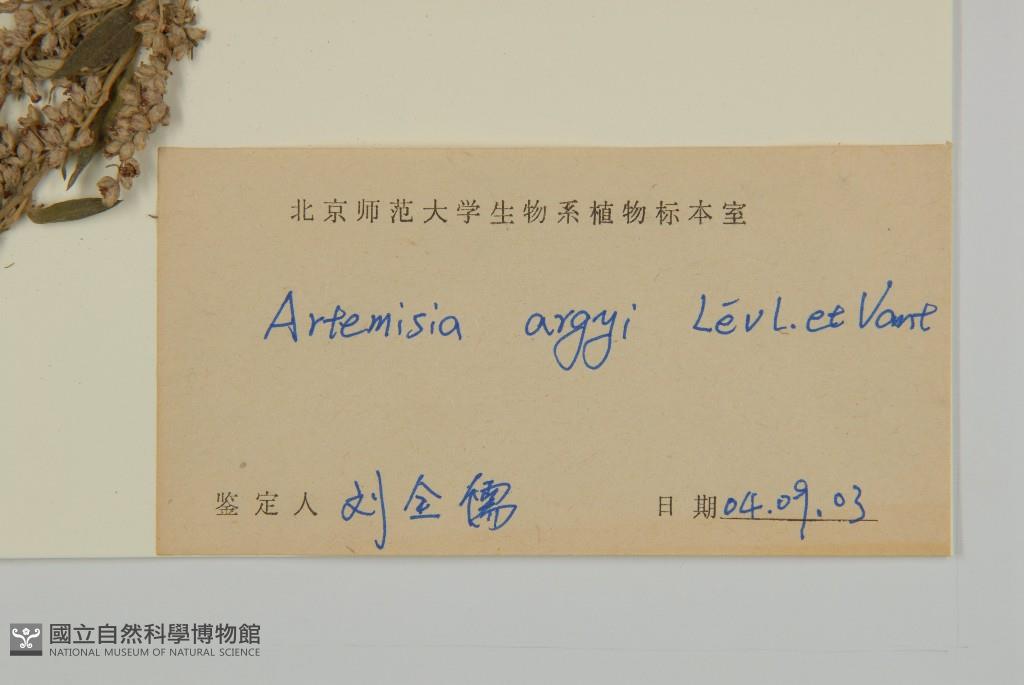 北京师范大学生物系植物标本室
Artemisia argyi Lévl. et Vant
鉴定人 刘全儒 日期 04.09.03
國立自然科學博物館
NATIONAL MUSEUM OF NATURAL SCIENCE